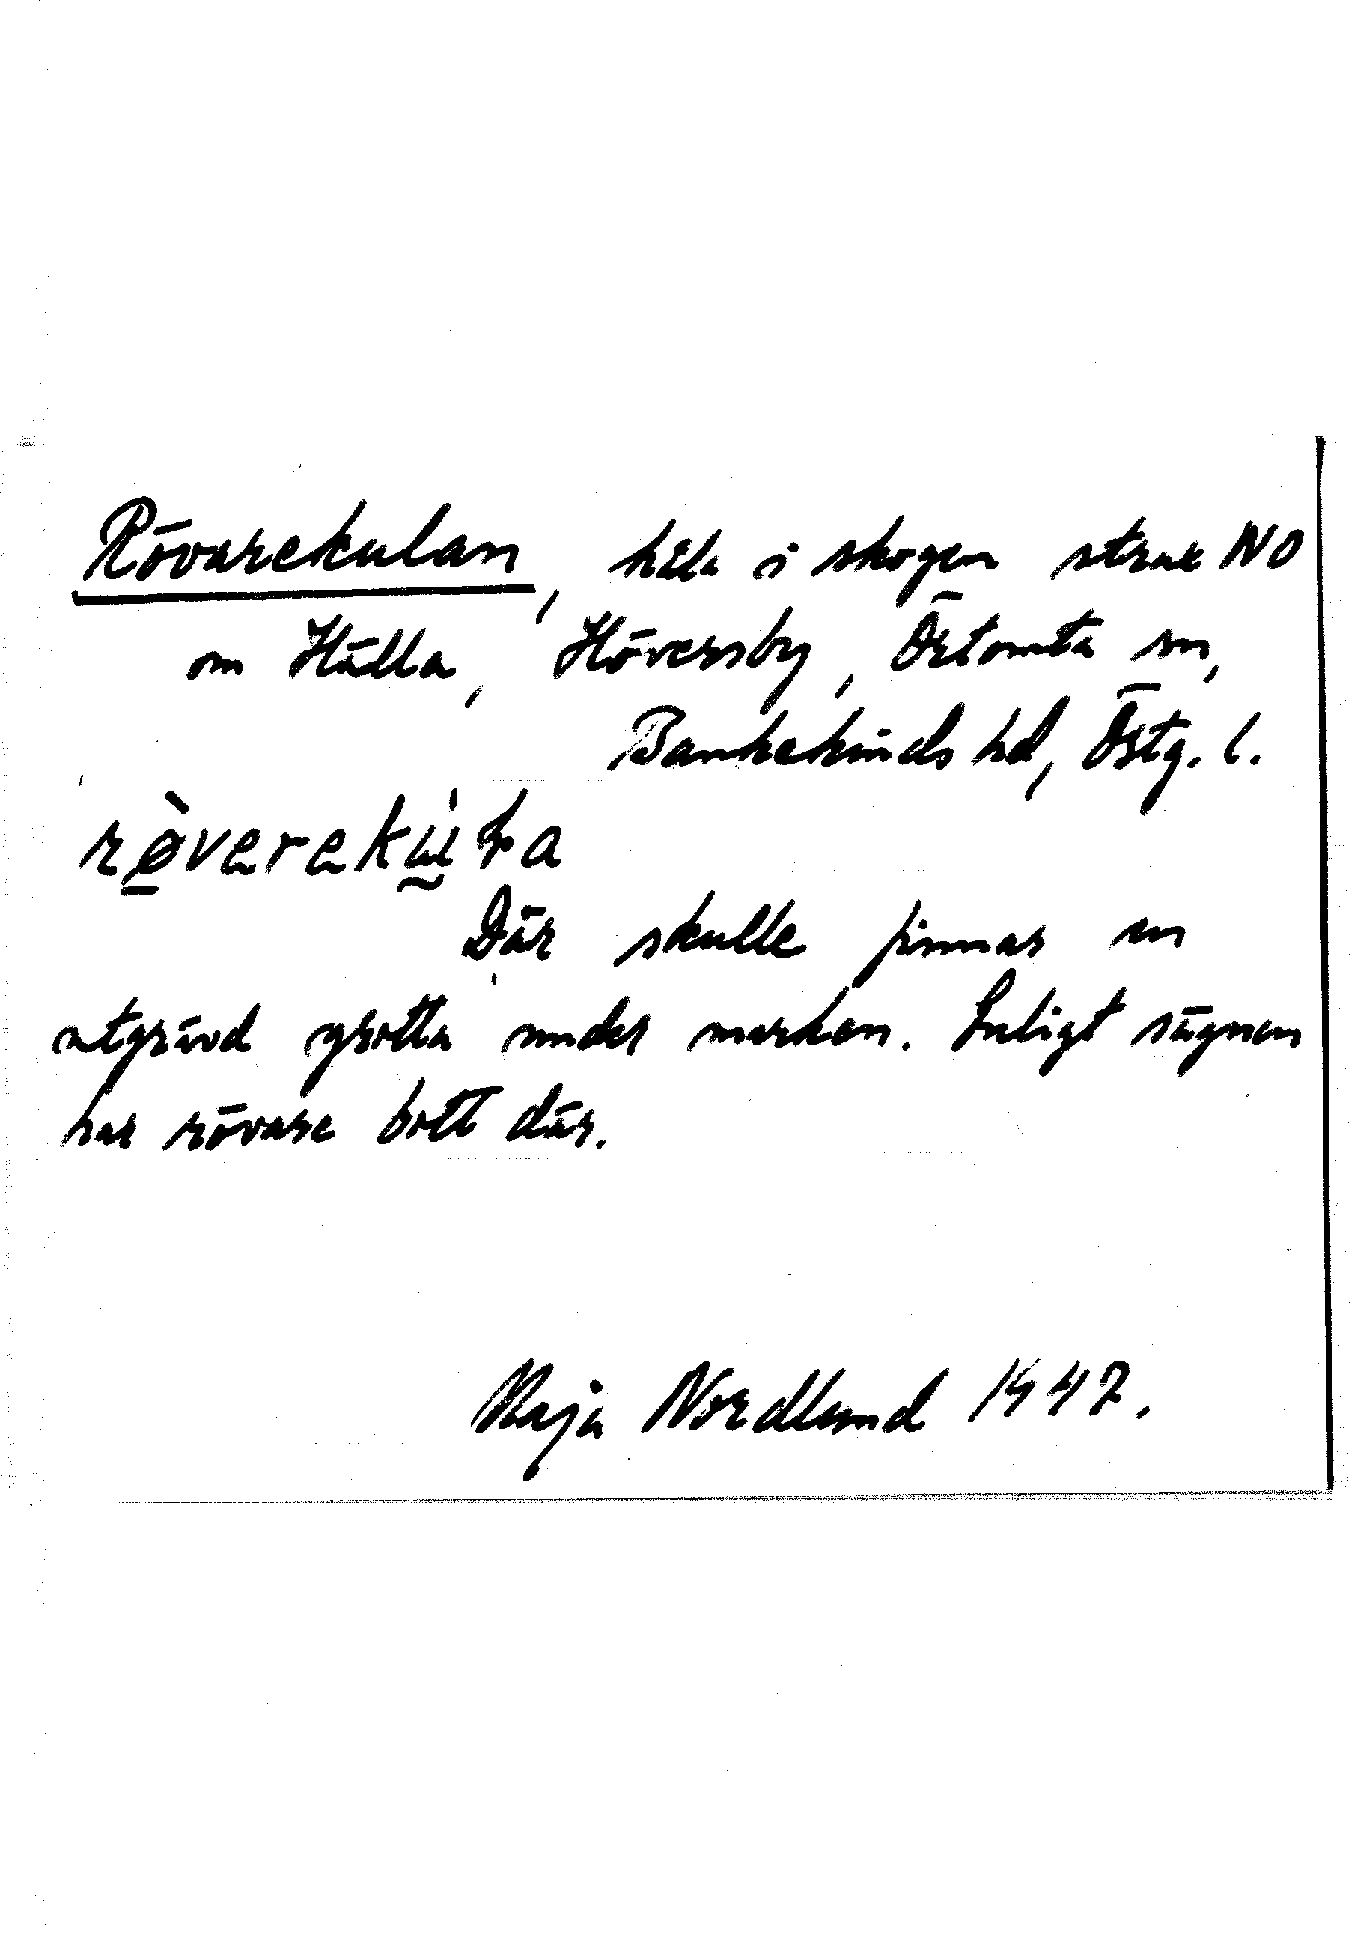 Rövarekulan, håla i skogen strax NO
om Hälla, Höversby, Örtomta sn,
Bankekinds hd, Östg. l.
Där skulle finnas en
utgrävd grotta under marken. Enligt sägnen
har rövare bott där.
Maja Nordlund 1947.